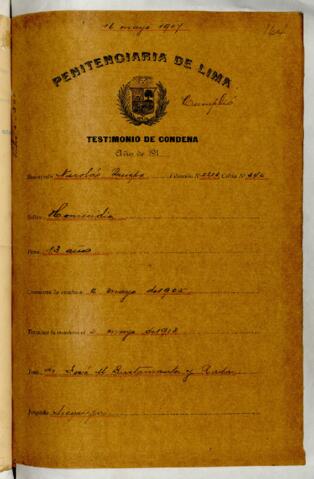 16 mayo 1907
164
PENITENCIARIA DE LIMA
Cumplió
TESTIMONIO DE CONDENA
Año de 191
Nicolás Quispe Filiación Nº Celda Nº
Delito Homicidio
Pena 13 años
Comienza la condena 2 mayo de 1905
Termina la condena el 2 mayo de 1918
Juez Dr. José M Bustamante y
Juzgado